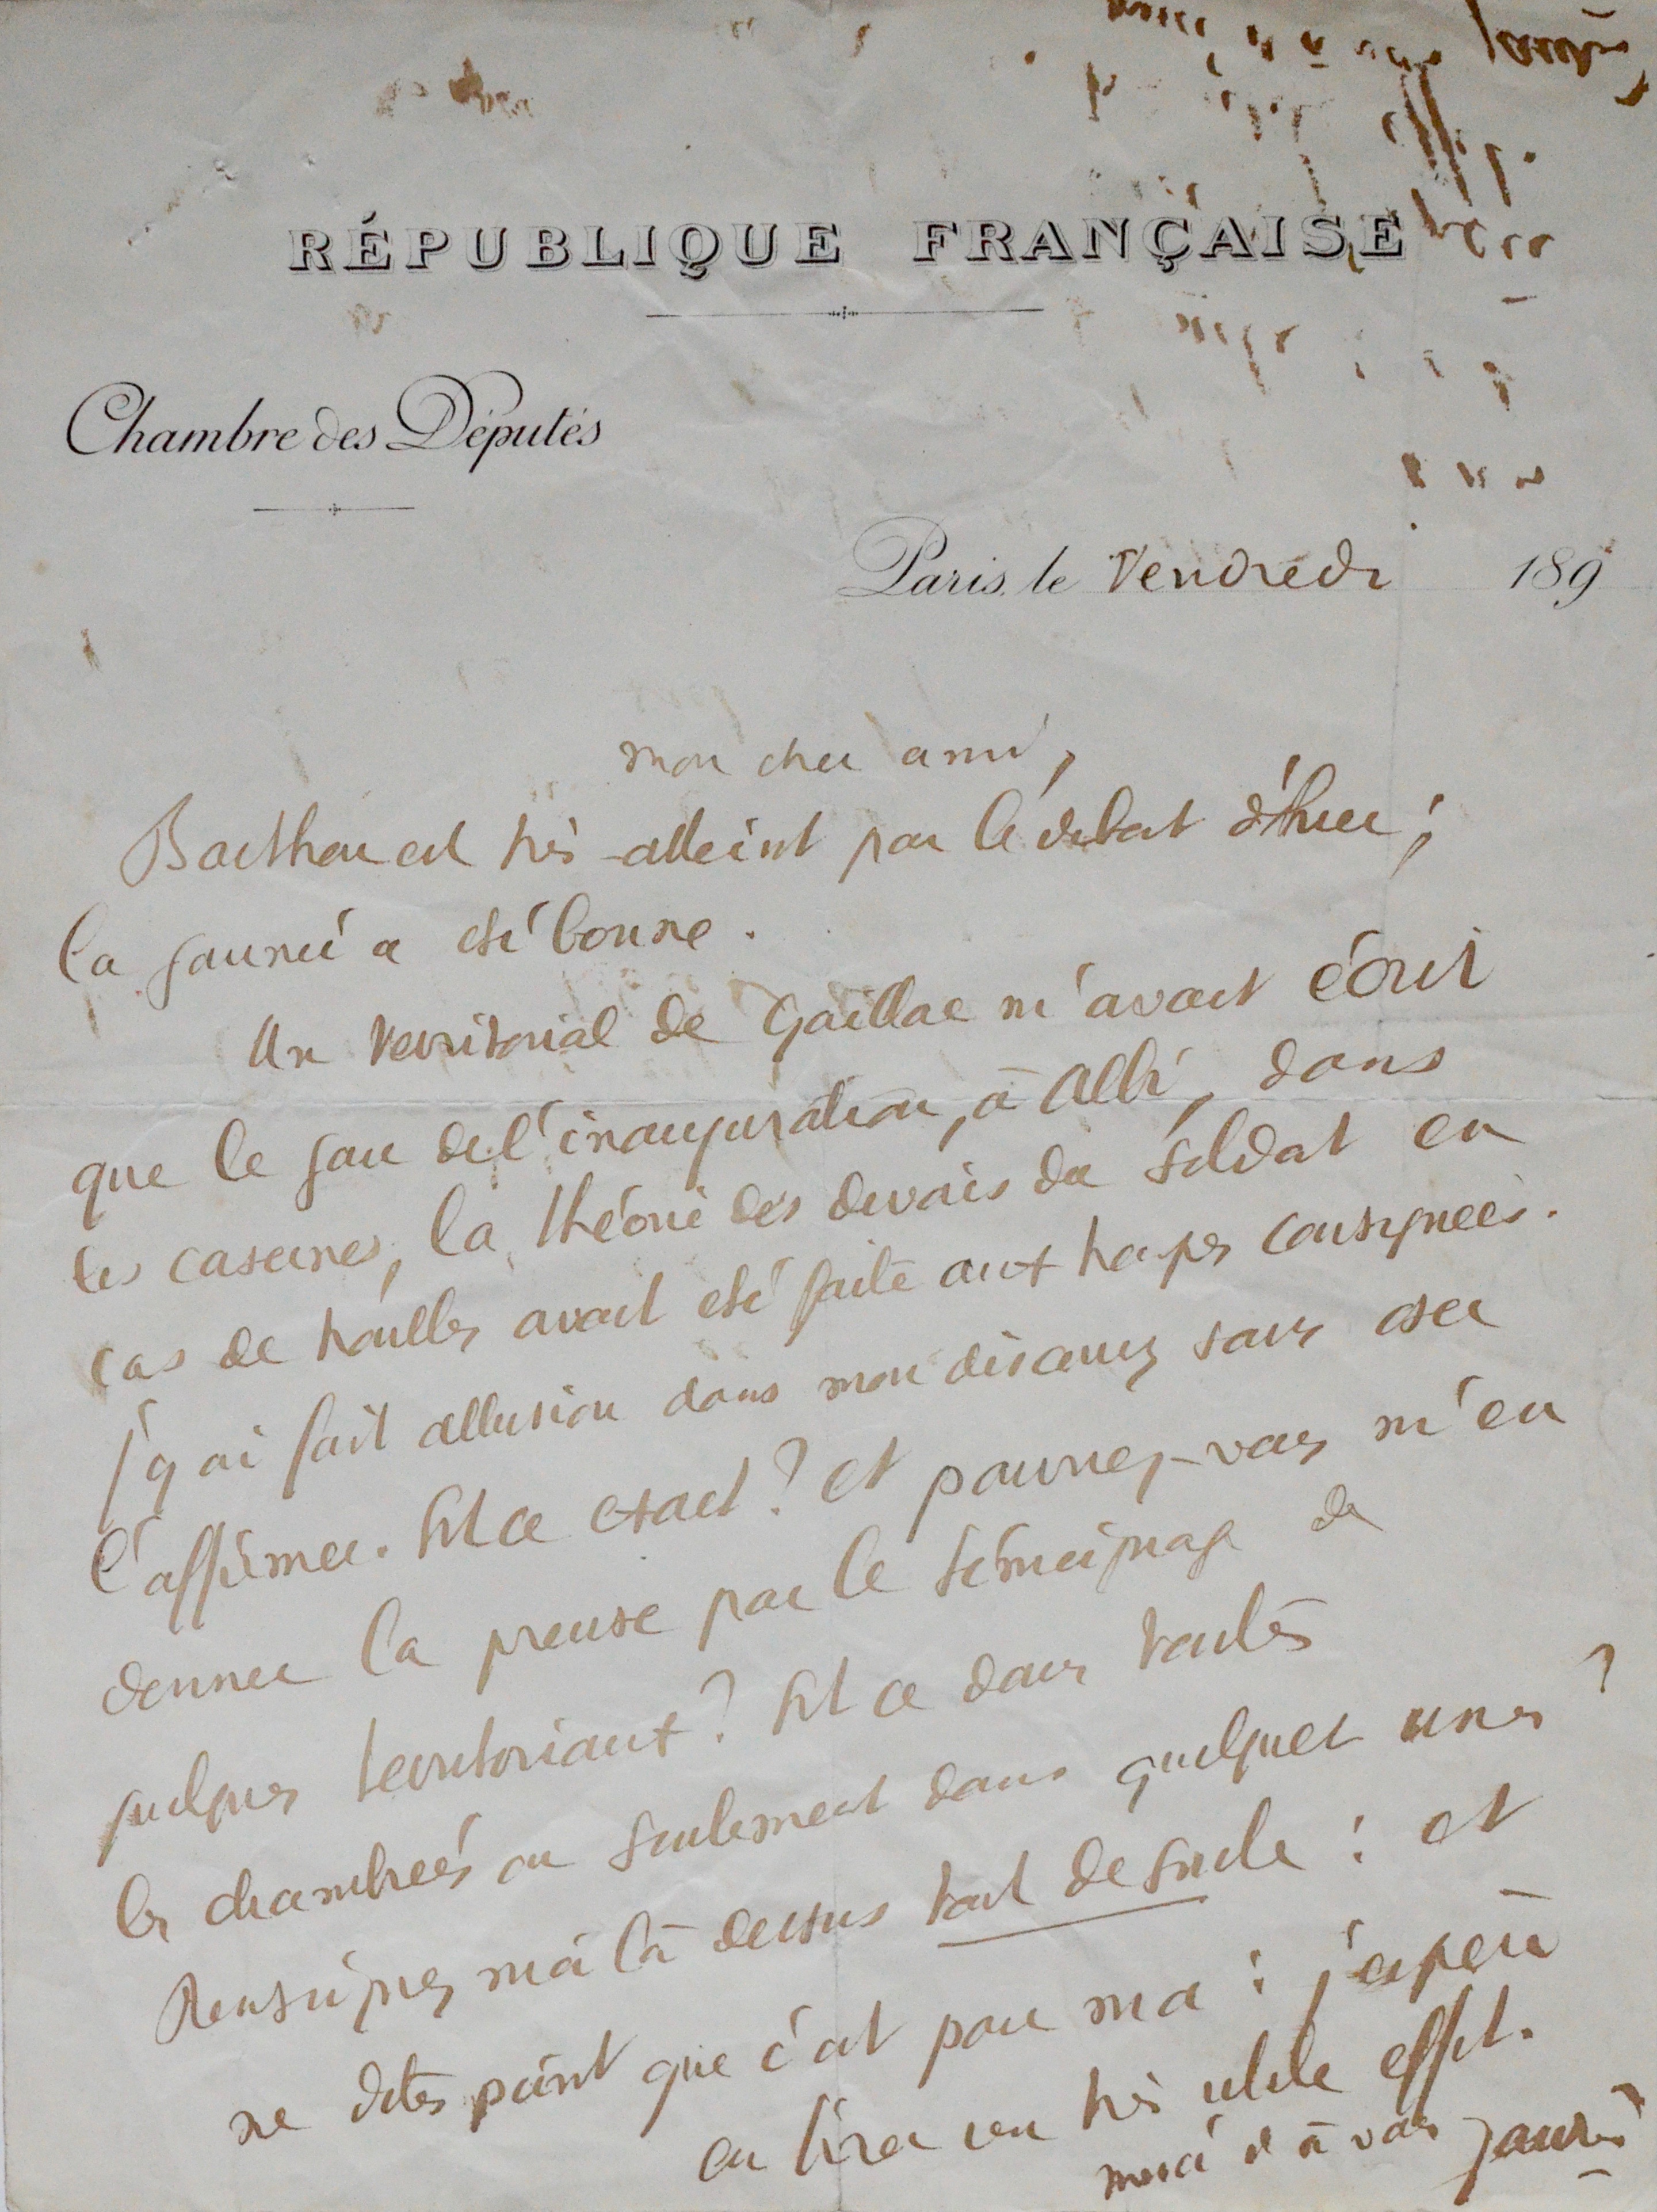 RÉPUBLIQUE FRANÇAISE
Chambre des Députés
Paris, le Vendredi 189
mon cher ami,
Barthou est très atteint par le débat d'hier ;
la journée a été bonne.
Un territorial de Gaillac m'avait écrit
que le jour de l'inauguration, à Albi, dans
les casernes, la théorie des devoirs du soldat en
cas de troubles avait été faite aux troupes consignées.
j'y ai fait allusion dans mon discours sans oser
l'affirmer. Est ce exact ? et pourriez-vous m'en
donner la preuve par le témoignage de
quelques territoriaux ? Est ce dans toutes
les chambrées ou seulement dans quelques unes ?
Renseignez moi là dessus tout de suite : et
ne dites point que c'est pour moi : j'espère
en tirer un très utile effet.
merci et à vous Jaurès